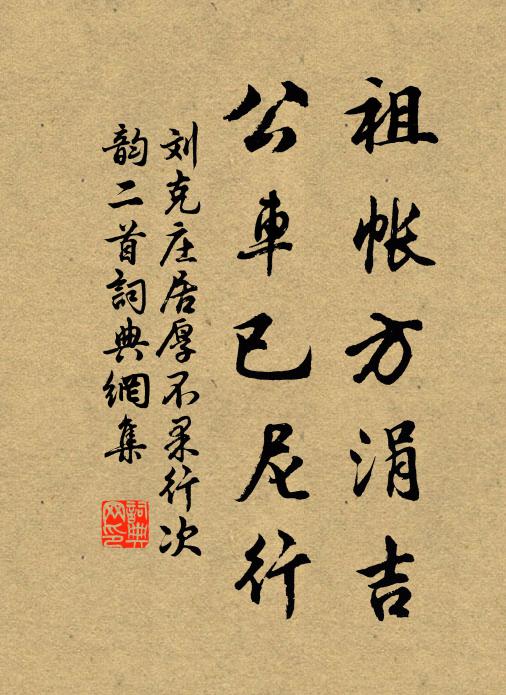 祖帐方涓吉
公車已尼行
刘克庄居厚不果行次
韵二首詞典網集
詞典
网印